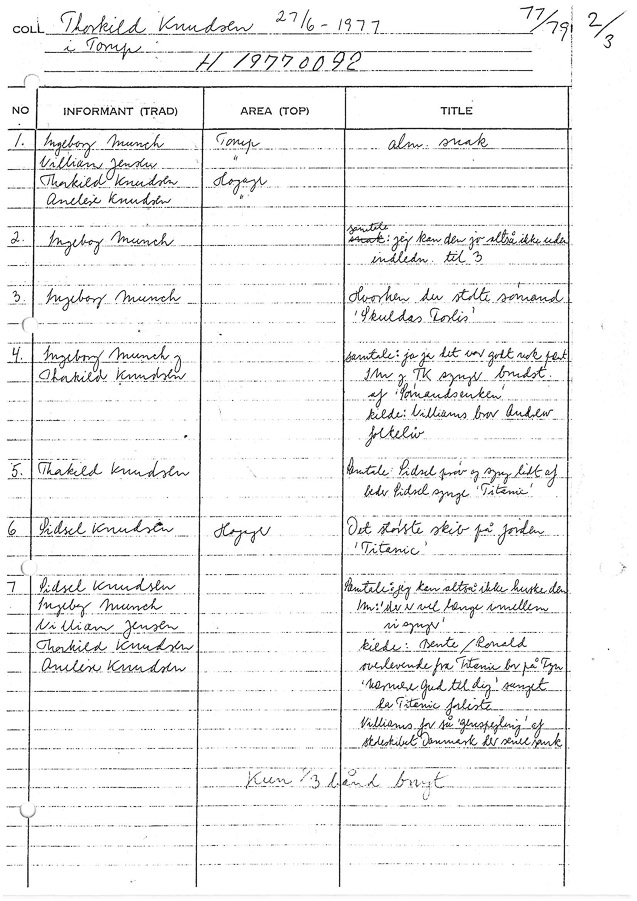 COLL Thorkild Knudsen 27/6-1977 77/79 2/3
i Torup
H 19770092
NO INFORMANT (TRAD) AREA (TOP) TITLE
1. Ingeborg Munch Torup alm. snak
Villiam Jensen "
Thorkild Knudsen Hogager
Anelise Knudsen "
samtale
2. Ingeborg Munch snak: jeg kan den jo altså ikke uden
indledn. til 3
3. Ingeborg Munch Hvorhen du stolte sømand
'Skuldas Forlis'
4. Ingeborg Munch og samtale: ja ja det var godt nok
Thorkild Knudsen IM og TK synger brudst.
af 'Sømandsenken'
kilde: Villiams bror Andrew
folkeliv
5. Thorkild Knudsen Samtale: Sidsel prøv og syng lidt af
beder Sidsel synge 'Titanic'
6 Sidsel Knudsen Hogager Det største skib på jorden
'Titanic'
7 Sidsel Knudsen Samtale: jeg kan altså ikke huske den
Ingeborg Munch IM: 'der er vel længe imellem
Villiam Jensen vi synger'
Thorkild Knudsen kilde: Bente / Ronald
Anelise Knudsen overlevende fra Titanic bor på Fyn
'nærmere Gud til dig' sunget
da Titanic forliste
Villiams far så 'genspejling' af
skoleskibet Danmark der senere sank
Kun 1/3 bånd brugt